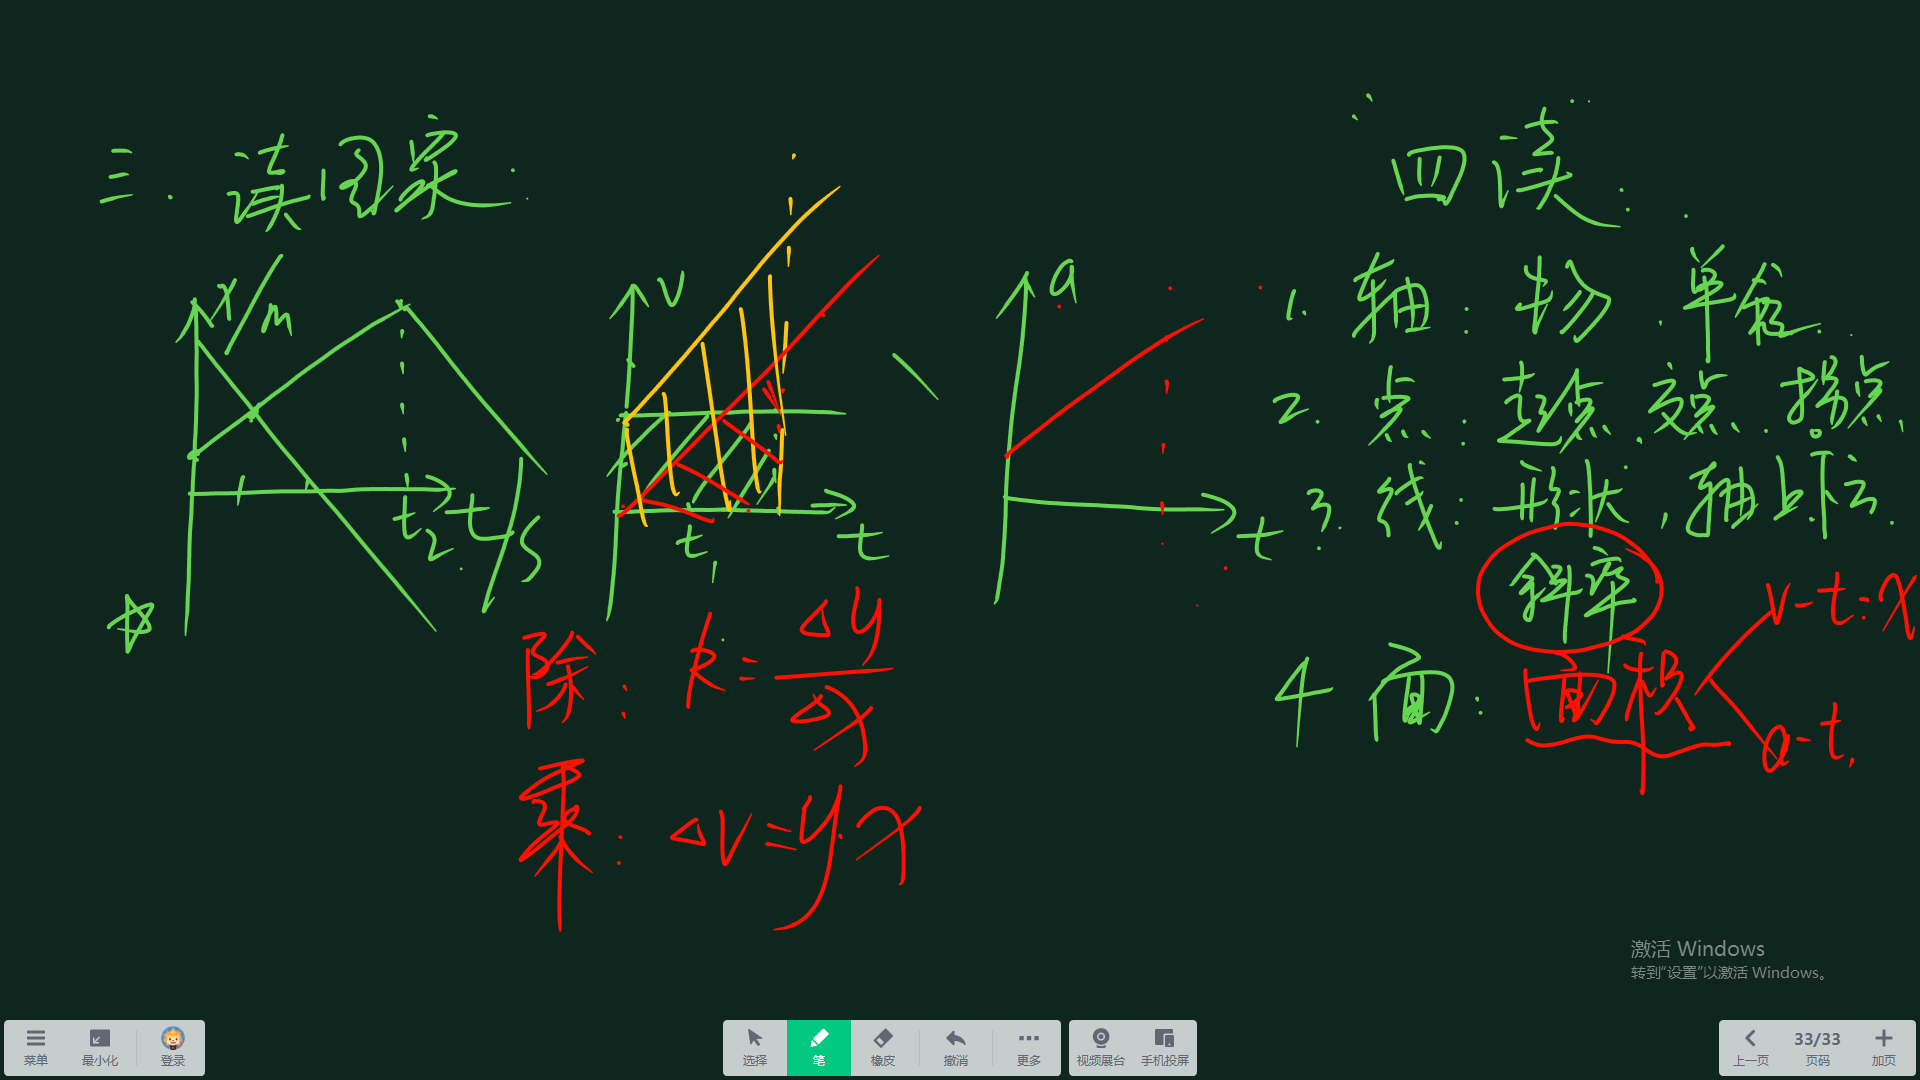 三. 读图象:
四读:
x/m
t₂ t/s
v
t₁ t
a
t
1. 轴: 物. 单位.
2. 点: 起点. 交点. 拐点.
3. 线: 形状, 轴上下.
斜率
4 面: 面积
v-t: x
a-t.
除: k = Δy/Δx
乘: Δv = y·x
激活 Windows
转到“设置”以激活 Windows。
菜单 最小化 登录
选择 笔 橡皮 撤消 更多
视频展台 手机投屏
上一页 33/33 页码 加页